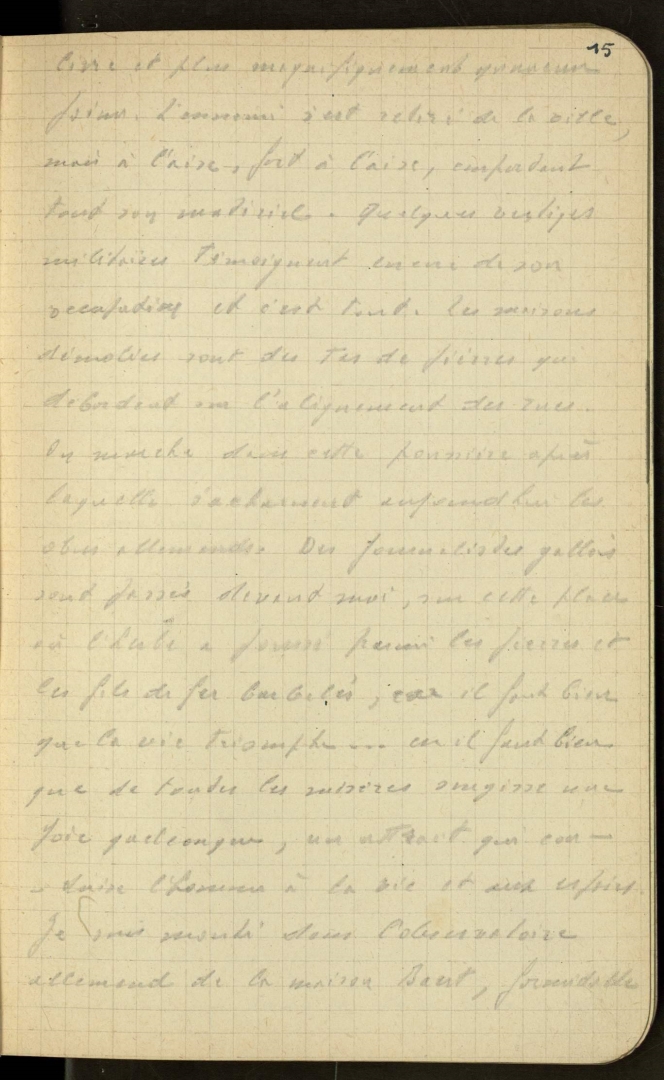 15
livre et plus magnifiquement qu'aucun
L'ennemi s'est retiré de la ville,
mais à l'aise, fort à l'aise, emportant
tout son matériel. Quelques vestiges
militaires témoignent encore de son
occupation et c'est tout. Les maisons
démolies sont des tas de pierres qui
débordent sur l'alignement des rues.
On marche dans cette poussière après
laquelle s'acharnent aujourd'hui les
obus allemands. Des journalistes gallois
sont passés devant moi, sur cette place
où l'herbe a poussé parmi les pierres et
les fils de fer barbelés, car il faut bien
que la vie triomphe ... car il faut bien
que de toutes les misères surgisse une
joie quelconque, un attrait qui con-
-duise l'homme à la vie et aux espoirs.
Je suis monté dans l'observatoire
allemand de la maison Baert, formidable